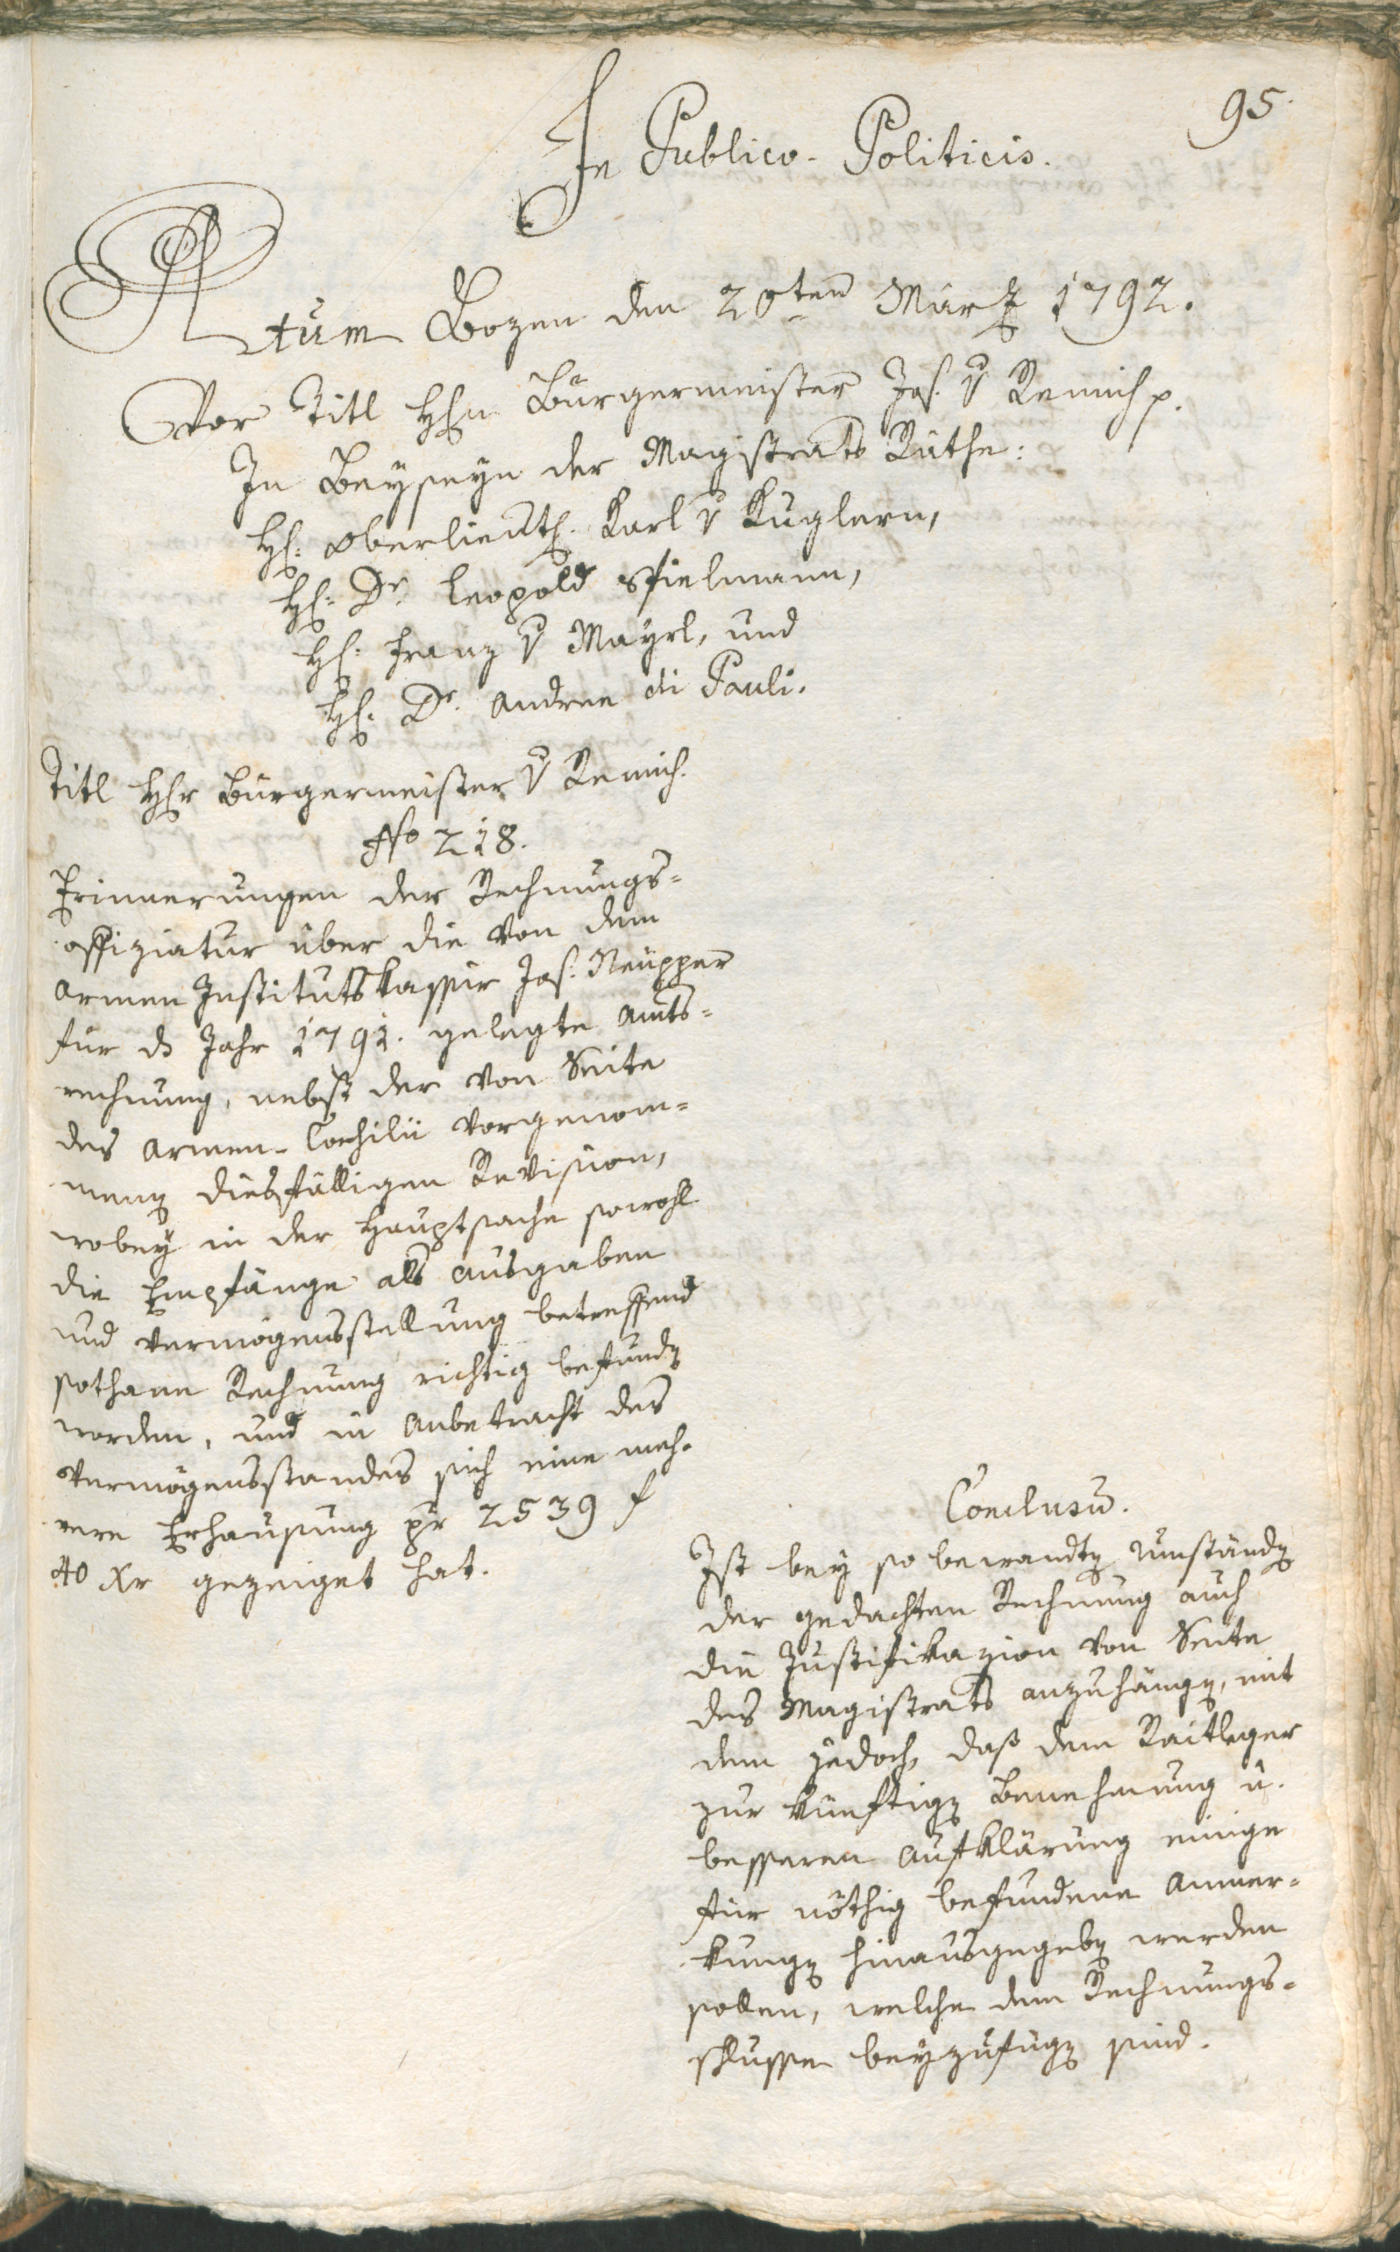 95.
In Publico-Politicis.
Actum Bozen den 20ten Märtz 1792.
Vor Titl Hhn Bürgermeister Jos. v Remich p.
In Beyseyn der Magistrats Räthe:
Hh: Oberlieut. Karl v Kuglern,
Hh: Dr. Leopold Spielmann,
Hh: Franz v Mayrl, und
Hh: Dr. Andree di Pauli.
Titl Hhr Bürgermeister v Remich.
No 218.
Erinnerungen der Rechnungs-
offiziatur über die von dem
Armen Instituts kassir Jos. Neupper
für ds Jahr 1791. gelegte Amts-
rechnung, nebst der von Seite
des Armen-Consilii vorgenom-
menen diesfälligen Revision,
wobey in der Hauptsache sowohl
die Empfänge als Ausgaben
und Vermögensstellung betreffend
sothane Rechnung richtig befunden
worden, und in Anbetracht des
Vermögensstandes sich eine meh-
rere Erhausung pr 2539 f
40 Xr gezeiget hat.
Conclusum.
Ist bey so bewandten Umständen
der gedachten Rechnung auch
die Justifikazion von Seite
des Magistrats anzuhängen, mit
dem jedoch, daß dem Raitleger
zur künftigen Benehmung u.
besseren Aufklärung einige
für nöthig befundene Anmer-
kungen hinausgegeben werden
sollen, welche dem Rechnungs-
schlusse beyzufügen sind.